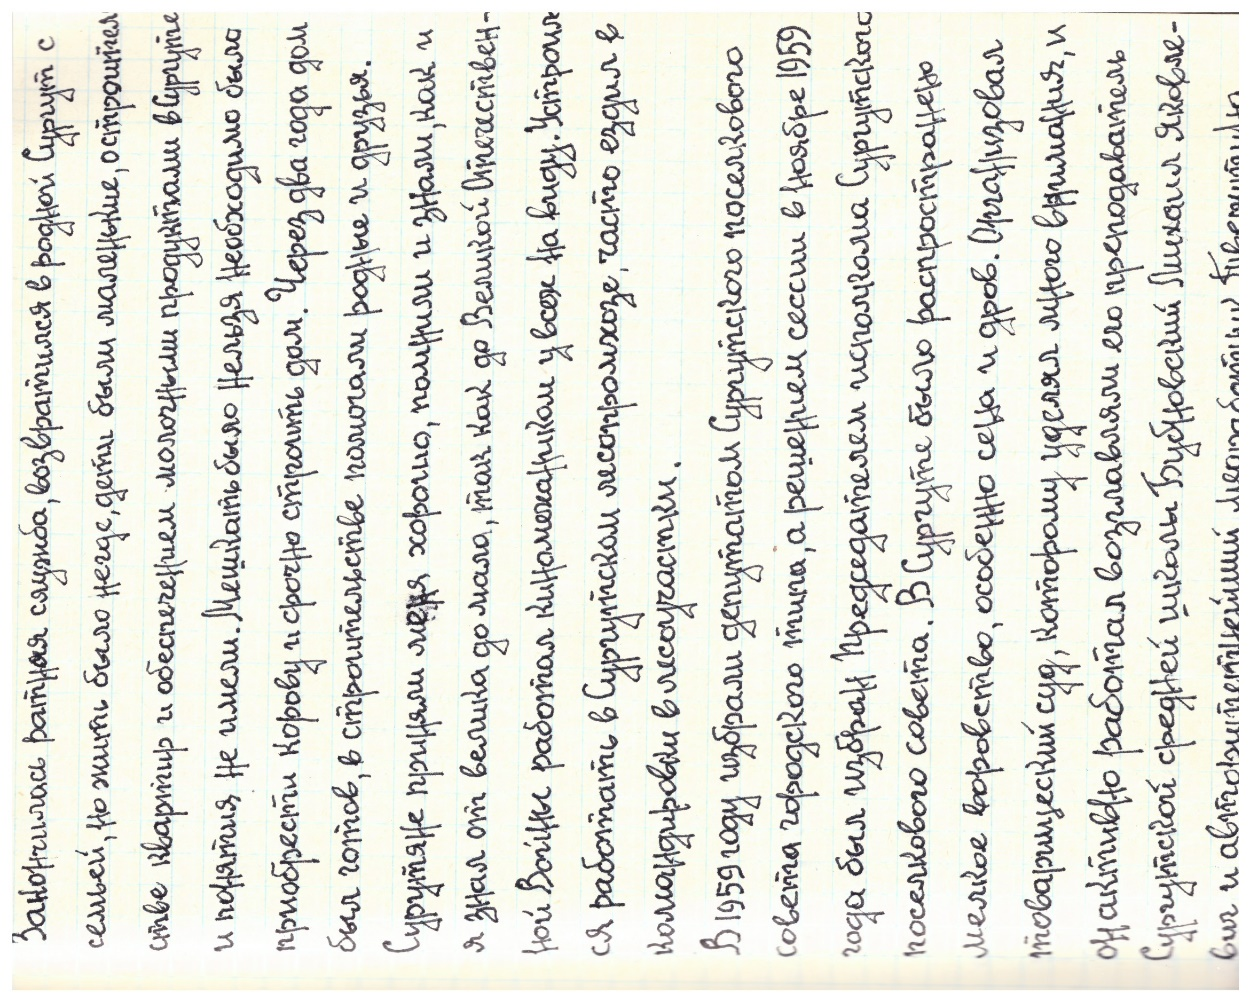 Закончилась ратная служба, возвратился в родной Сургут с
семьей, но жить было негде, дети были маленькие, о строитель
стве квартир и обеспечением молочными продуктами в Сургуте
и понятия не имели. Мешкать было нельзя необходимо было
приобрести корову и срочно строить дом. Через два года дом
был готов, в строительстве помогали родные и друзья.
Сургутяне приняли меня хорошо, помнили и знали, как и
я знал от велика до мала, так как до Великой Отечествен-
ной Войны работал киномехаником у всех на виду. Устроил
ся работать в Сургутском леспромхозе, часто ездил в
командировки в лесоучастки.
В 1959 году избрали депутатом Сургутского поселкового
совета городского типа, а решением сессии в ноябре 1959
года был избран Председателем исполкома Сургутского
поселкового совета. В Сургуте было распространено
мелкое воровство, особенно сена и дров. Организовал
товарищеский суд, которому уделял много внимания, и
он активно работал возглавляли его преподаватель
Сургутской средней школы Бубновский Михаил Яковле-
вич и авторитетнейший